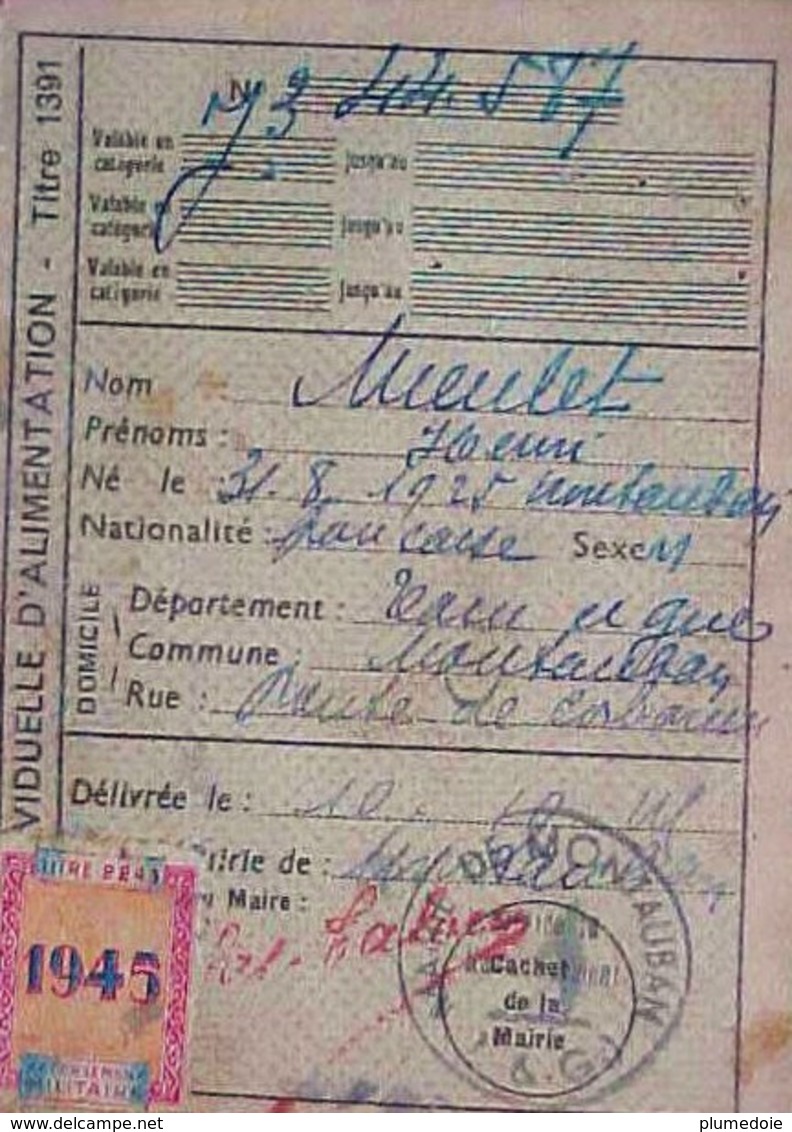 VIDUELLE D'ALIMENTATION - Titre 1391
N
Valable en catégorie jusqu'au
Valable en catégorie jusqu'au
Valable en catégorie jusqu'au
Nom
Prénoms : Henri
Né le : 31. 8. 1925 Montauban
Nationalité : française Sexe M
DOMICILE
Département : Tarn et Gne
Commune : Montauban
Rue : Route de
Délivrée le : 10
Mairie de : Montauban
Maire :
DE MONTAUBAN
Cachet
de la
Mairie
TITRE
1945
MILITAIRE
plumedoie